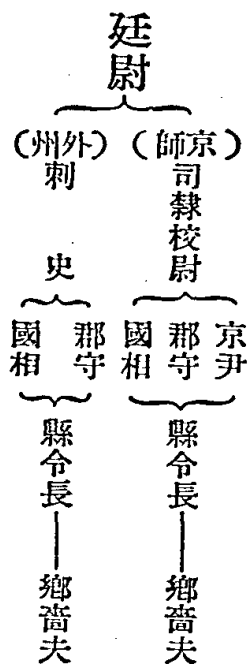 廷尉
(京師)
司隸校尉
京尹
郡守
國相
縣令長
鄉嗇夫
(外州)
刺史
郡守
國相
縣令長
鄉嗇夫